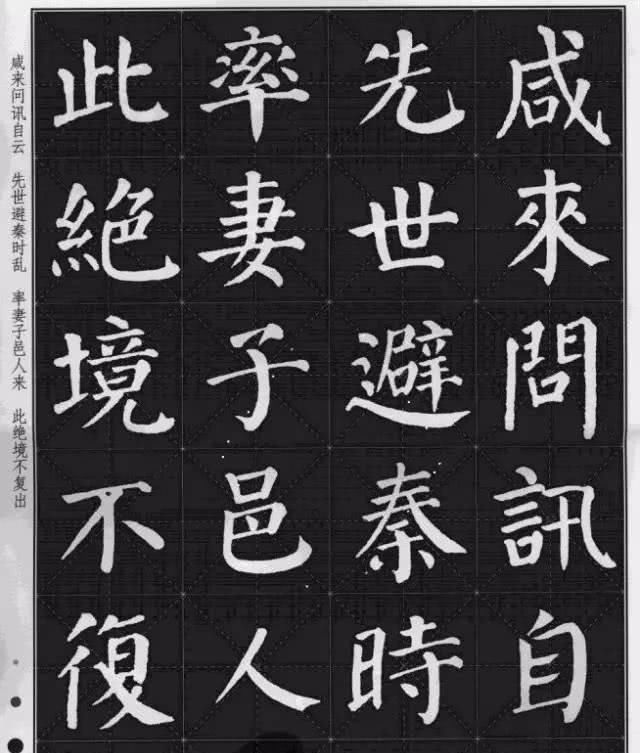 咸來問訊自
先世避秦時
率妻子邑人
此絕境不復
咸来问讯自云 先世避秦时乱 率妻子邑人来 此绝境不复出